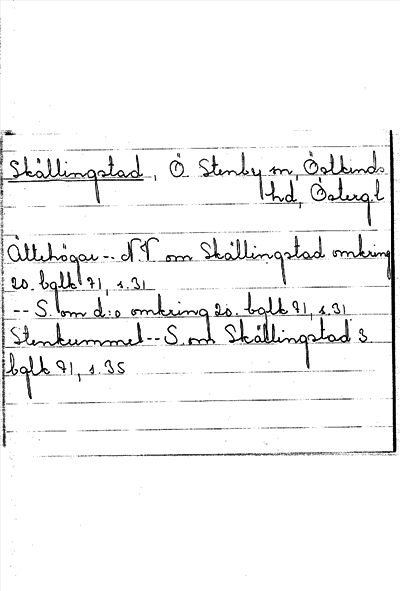 Skällingstad, Ö Stenby sn, Östkinds
hd, Östergl
Ättehögar -- N.V om Skällingstad omkring
20. bglk 71, s. 31
-- S. om d:o omkring 20. bglk 71, s. 31
Stenkummel -- S. om Skällingstad 3
bglk 71, s. 35